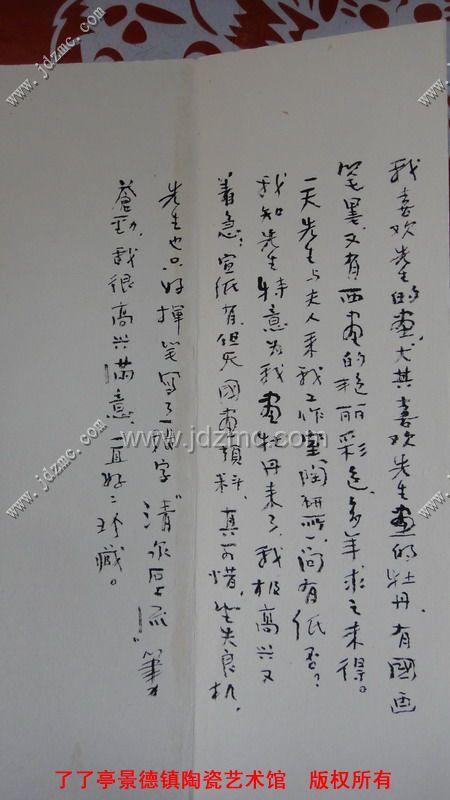 我喜欢先生的画,尤其喜欢先生画的牡丹,有國画
笔墨又有西画的艳丽彩色,多年求之未得。
一天先生与夫人来我工作室(陶研所)问有纸否?
我知先生特意为我画牡丹来了,我极高兴又
着急,宣纸有,但无國画颜料,真可惜,坐失良机,
先生也只好揮笔写了一幅字"清泉石上流"筆力
蒼勁,我很高兴满意,一直好好珍藏。
www.jdzmc.com
www.jdzmc.com
www.jdzmc.com
www.jdzmc.com
www.jdzmc.com
了了亭景德镇陶瓷艺术馆 版权所有